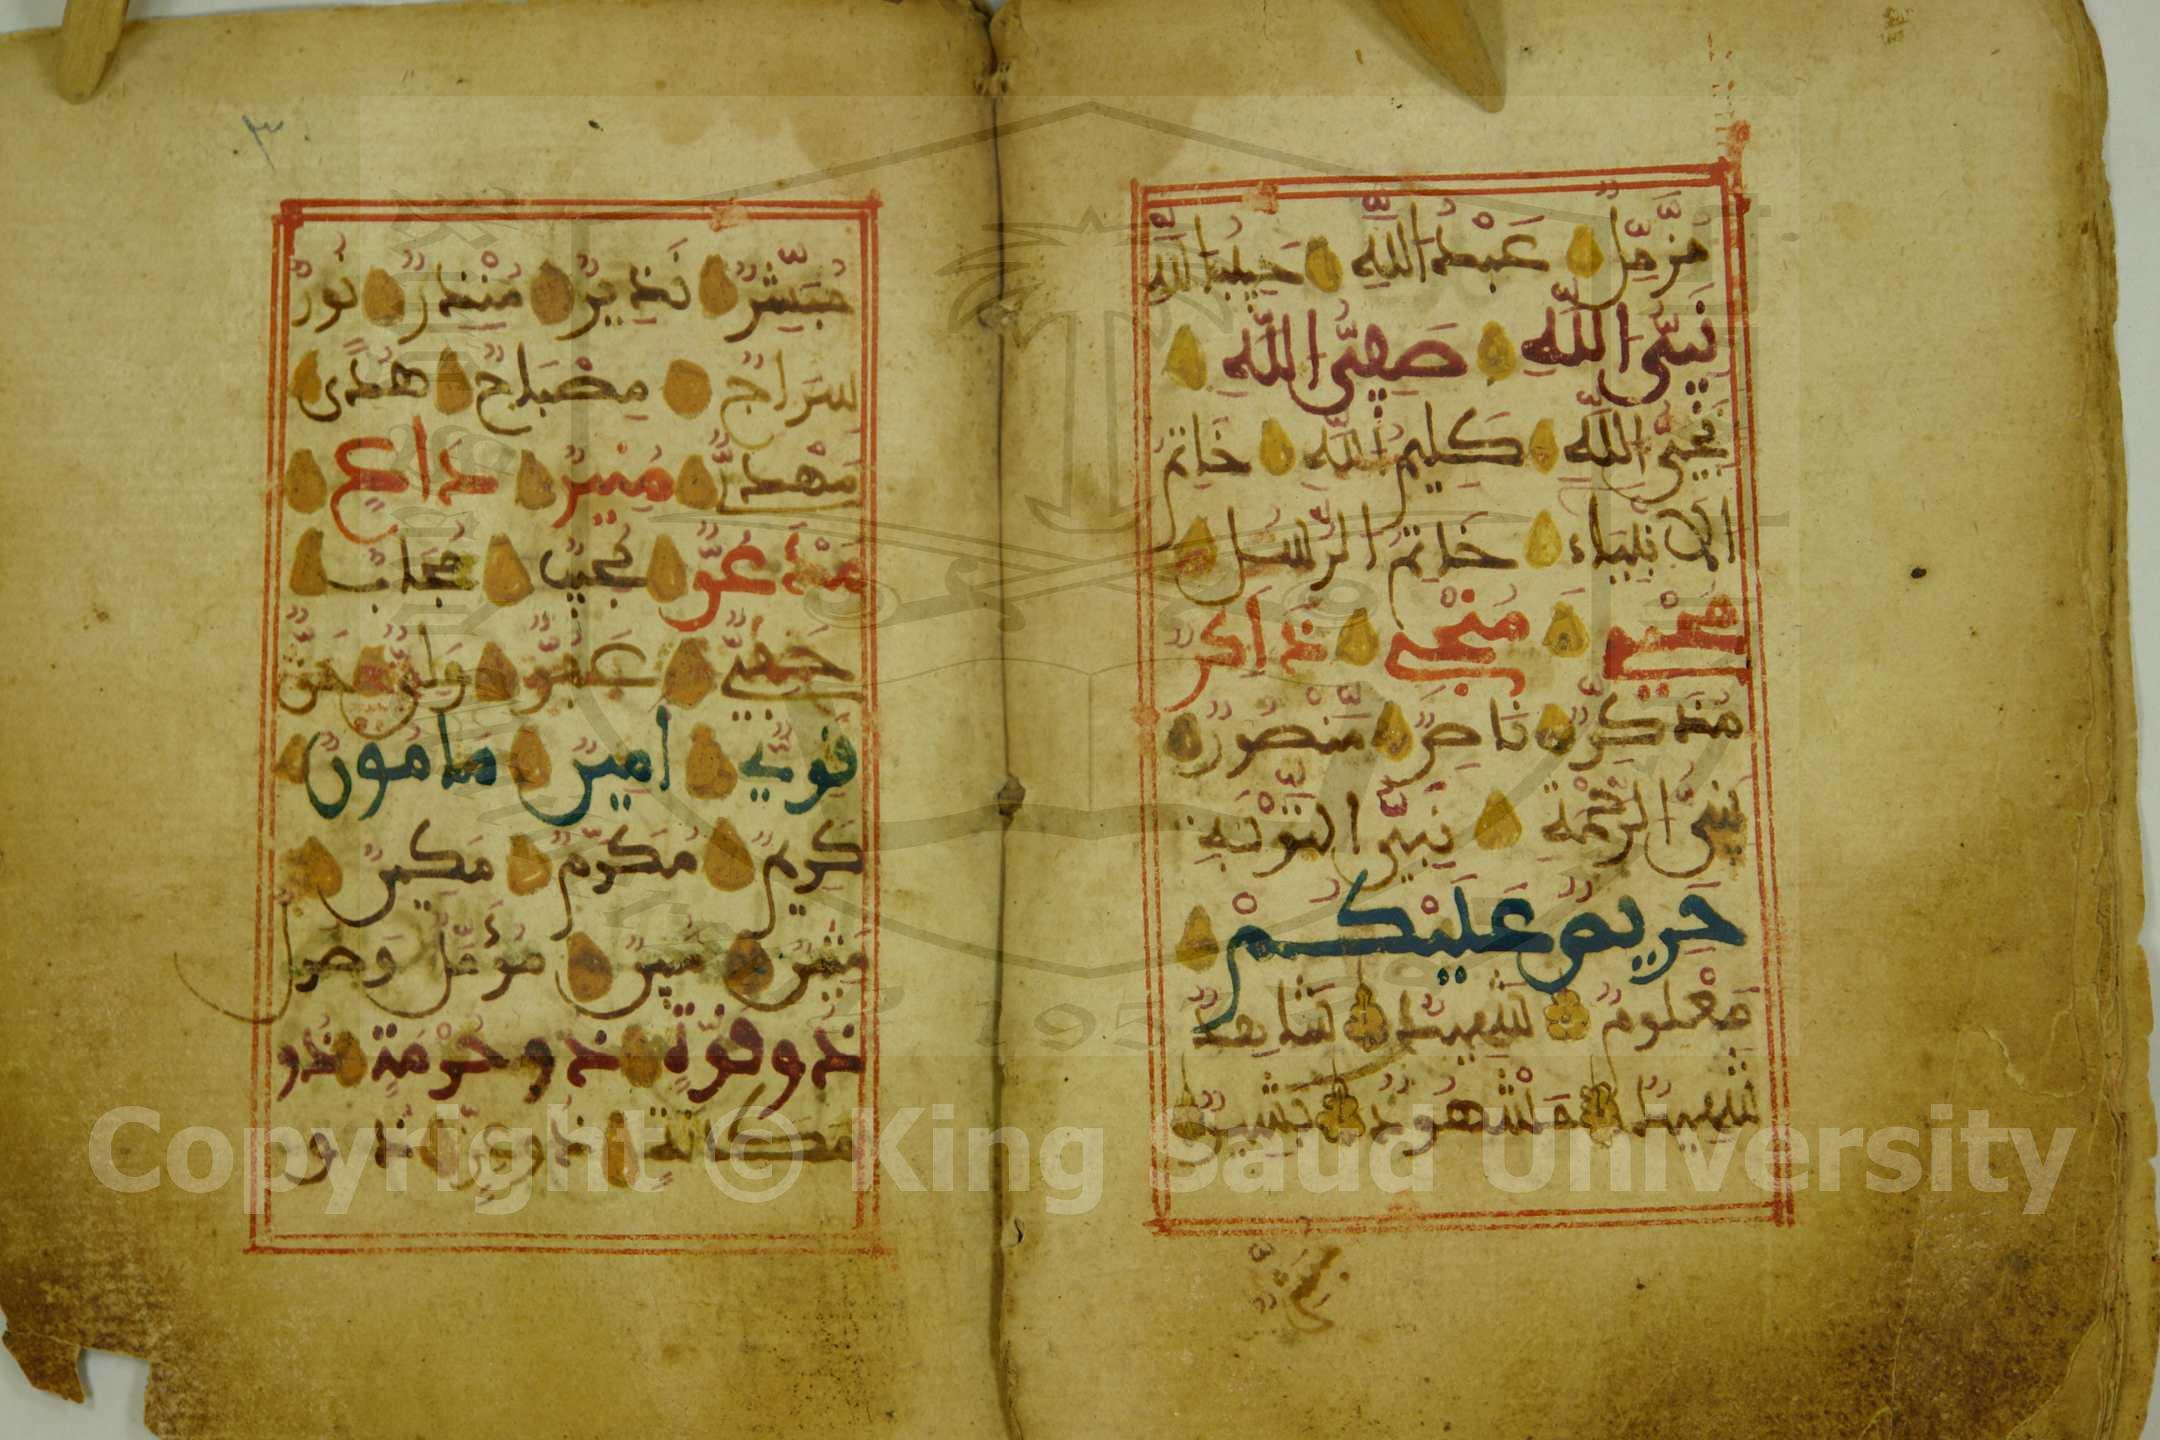 مُزَّمِّلٌ عَبْدُ اللَّهِ حَبِيبُ اللَّهِ
نَبِيُّ اللَّهِ صَفِيُّ اللَّهِ
نَجِيُّ اللَّهِ كَلِيمُ اللَّهِ خَاتِمُ
الانْبِيَاءِ خَاتِمُ الرُّسُلِ
مُحْيِي مُنْجِي مُذَكِّرٌ
مُذَكِّرٌ نَاصِرٌ مَّنْصُورٌ
نَبِيُّ الرَّحْمَةِ نَبِيُّ التَّوْبَةِ
حَرِيصٌ عَلَيْكُمْ
مَعْلُومٌ شَهِيرٌ شَاهِدٌ
شَهِيدٌ مَشْهُودٌ بَشِيرٌ
مُبَشِّرٌ
٣
مُبَشِّرٌ نَذِيرٌ مُنْذِرٌ نُورٌ
سِرَاجٌ مِصْبَاحٌ هُدًى
مَهْدِيٌّ مُنِيرٌ دَاعٍ
مَدْعُوٌّ مُجِيبٌ مُجَابٌ
حَفِيٌّ عَفُوٌّ وَلِيٌّ حَقٌّ
قَوِيٌّ امِينٌ مَامُونٌ
كَرِيمٌ مُكَرَّمٌ مَكِينٌ
مَتِينٌ مُبِينٌ مُؤَمِّلٌ وَصُولٌ
ذُو قُوَّةٍ ذُو حُرْمَةٍ ذُو
مَكَانَةٍ ذُو عِزٍّ ذُو
Copyright © King Saud University